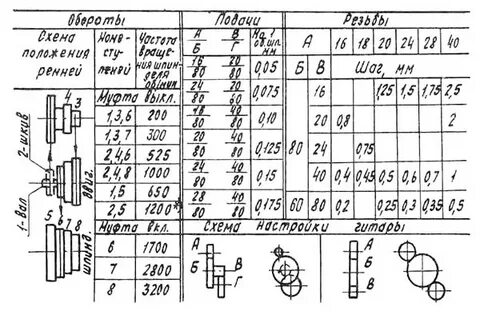 Обороты
Подачи
Резьбы
Схема положения ремней
Номе- ступеней
Частота вращения шпинделя об/мин
Муфта выкл.
1,3,6 200
1,3,7 300
2,4,6 525
2,4,8 1000
1,5 650
2,5 1200
Муфта вкл.
6 1700
7 2800
8 3200
4
3
2-шкив
1-вал
двиг.
5 6 7 8
шпинд.
А/Б В/Г На 1 об.шп. мм
16/80 20/80 0,05
24/80 20/60 0,075
18/80 40/80 0,10
20/80 40/80 0,125
24/80 40/80 0,15
28/80 40/80 0,175
А 16 18 20 24 28 40
Б В Шаг, мм
16 1,25 1,5 1,75 2,5
20 0,8 2
80 24 0,75
40 0,4 0,45 0,5 0,6 0,7 1
60 80 0,2 0,25 0,3 0,35 0,5
Схема настройки гитары
А
Б В
Г
А
Б
В